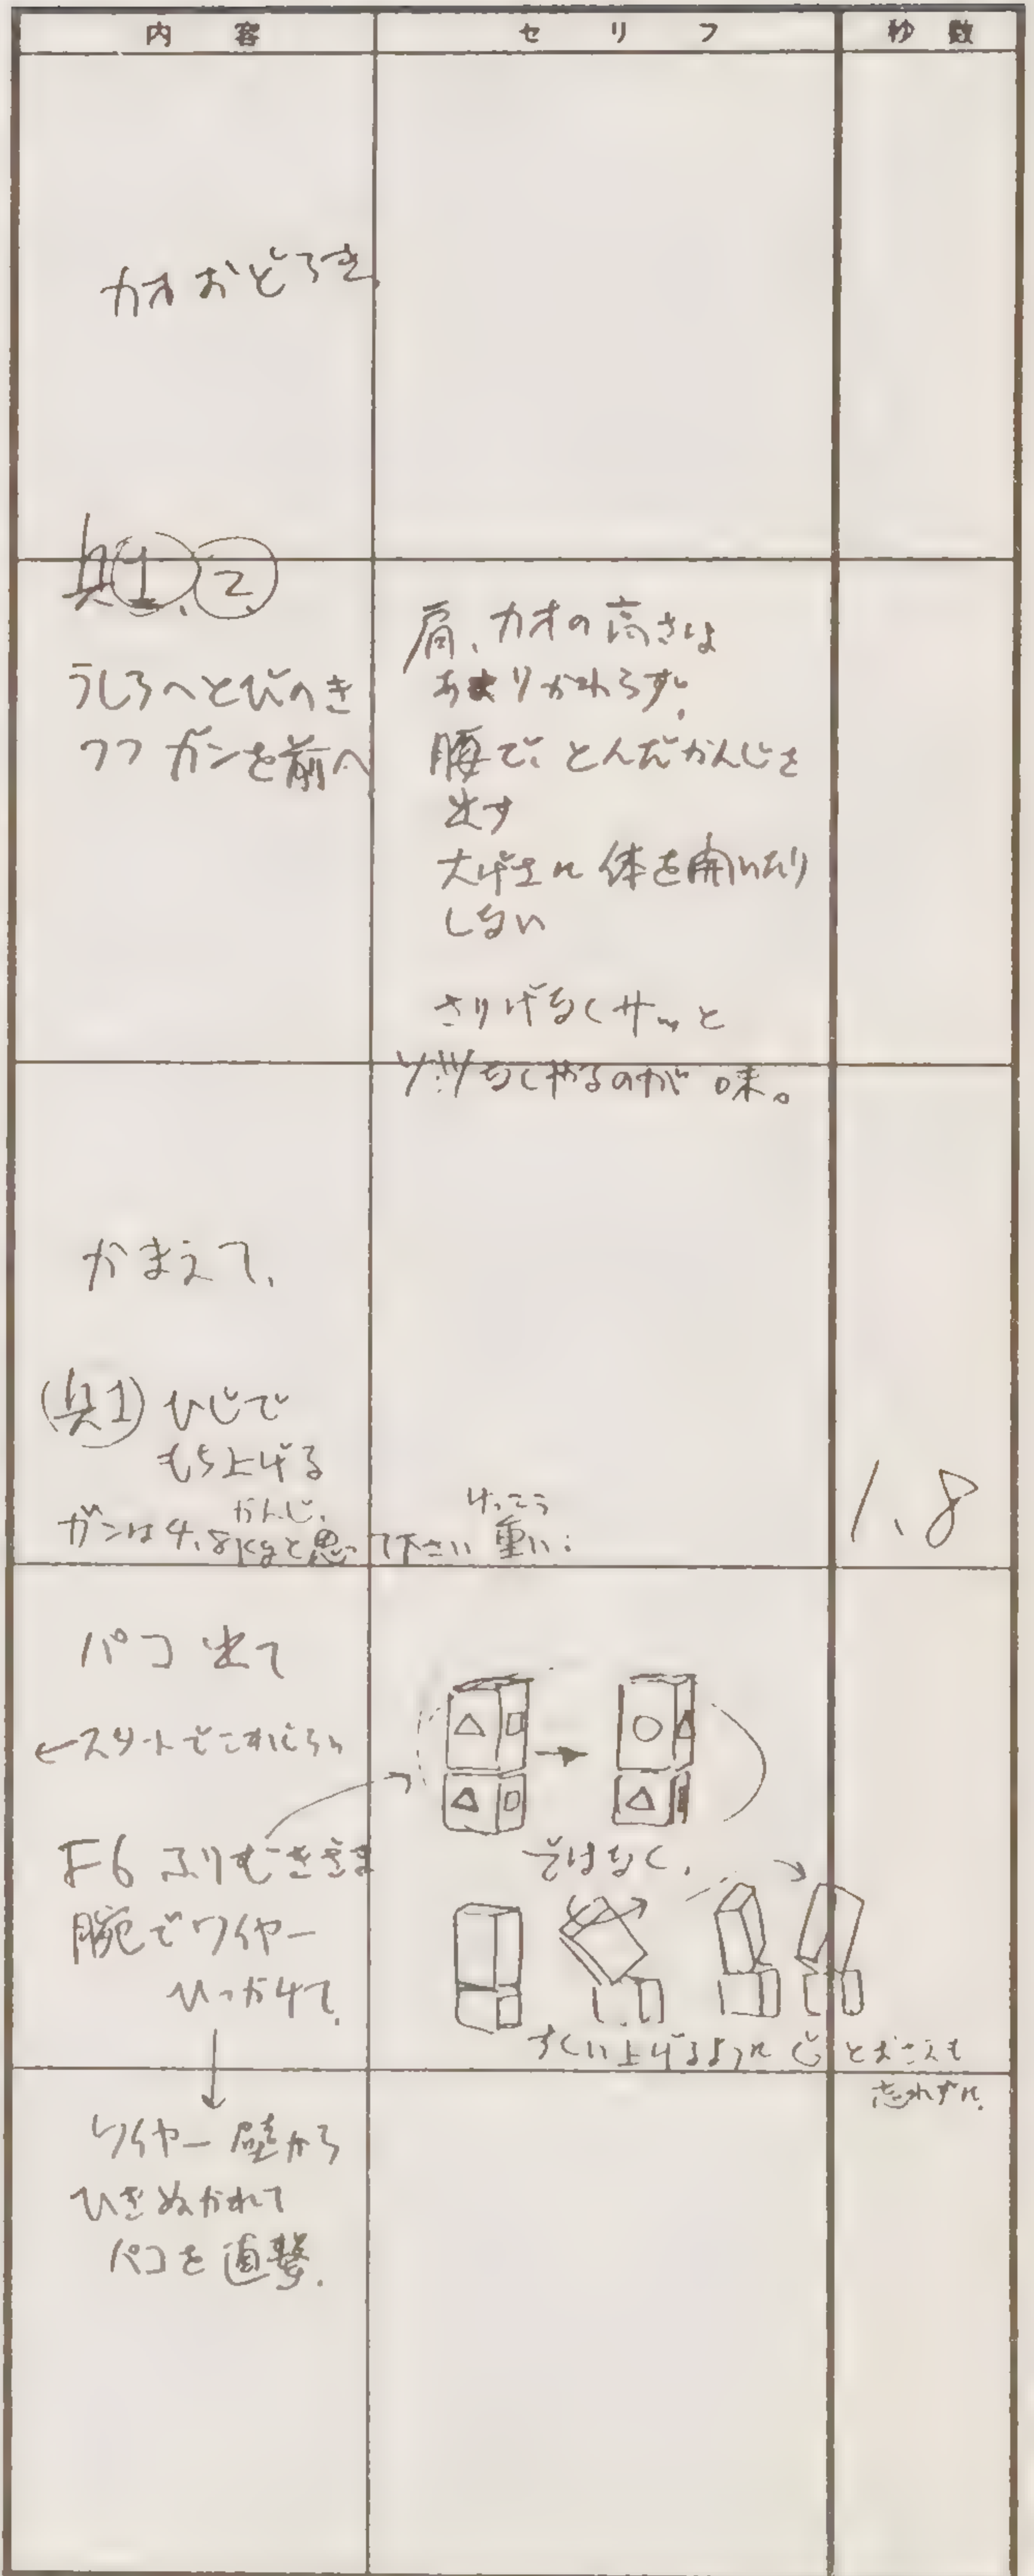 内容
セリフ
秒数
カオおどろき
兵1、2
うしろへとびのき
つつ ガンを前へ
肩、カオの高さは
あまりかわらず。
腰で、とんだかんじを
出す
大げさに 体を開いたり
しない
さりげなく サッと
ソツなくやるのが 味。
かまえて、
(兵1) ひじで
もち上げる
かんじ、
ガンは4.8kgと思って下さい けっこう重い:
1.8
パコ 出て
←スタートでこれにらい
F6 ふりむきざま
腕でワイヤー
ひっかけて、
△ □ → ○ △
△ □ △
ではなく、
すくい上げるように じっとおさえも
忘れずに。
ワイヤー 壁から
ひきぬかれて
パコを 直撃.